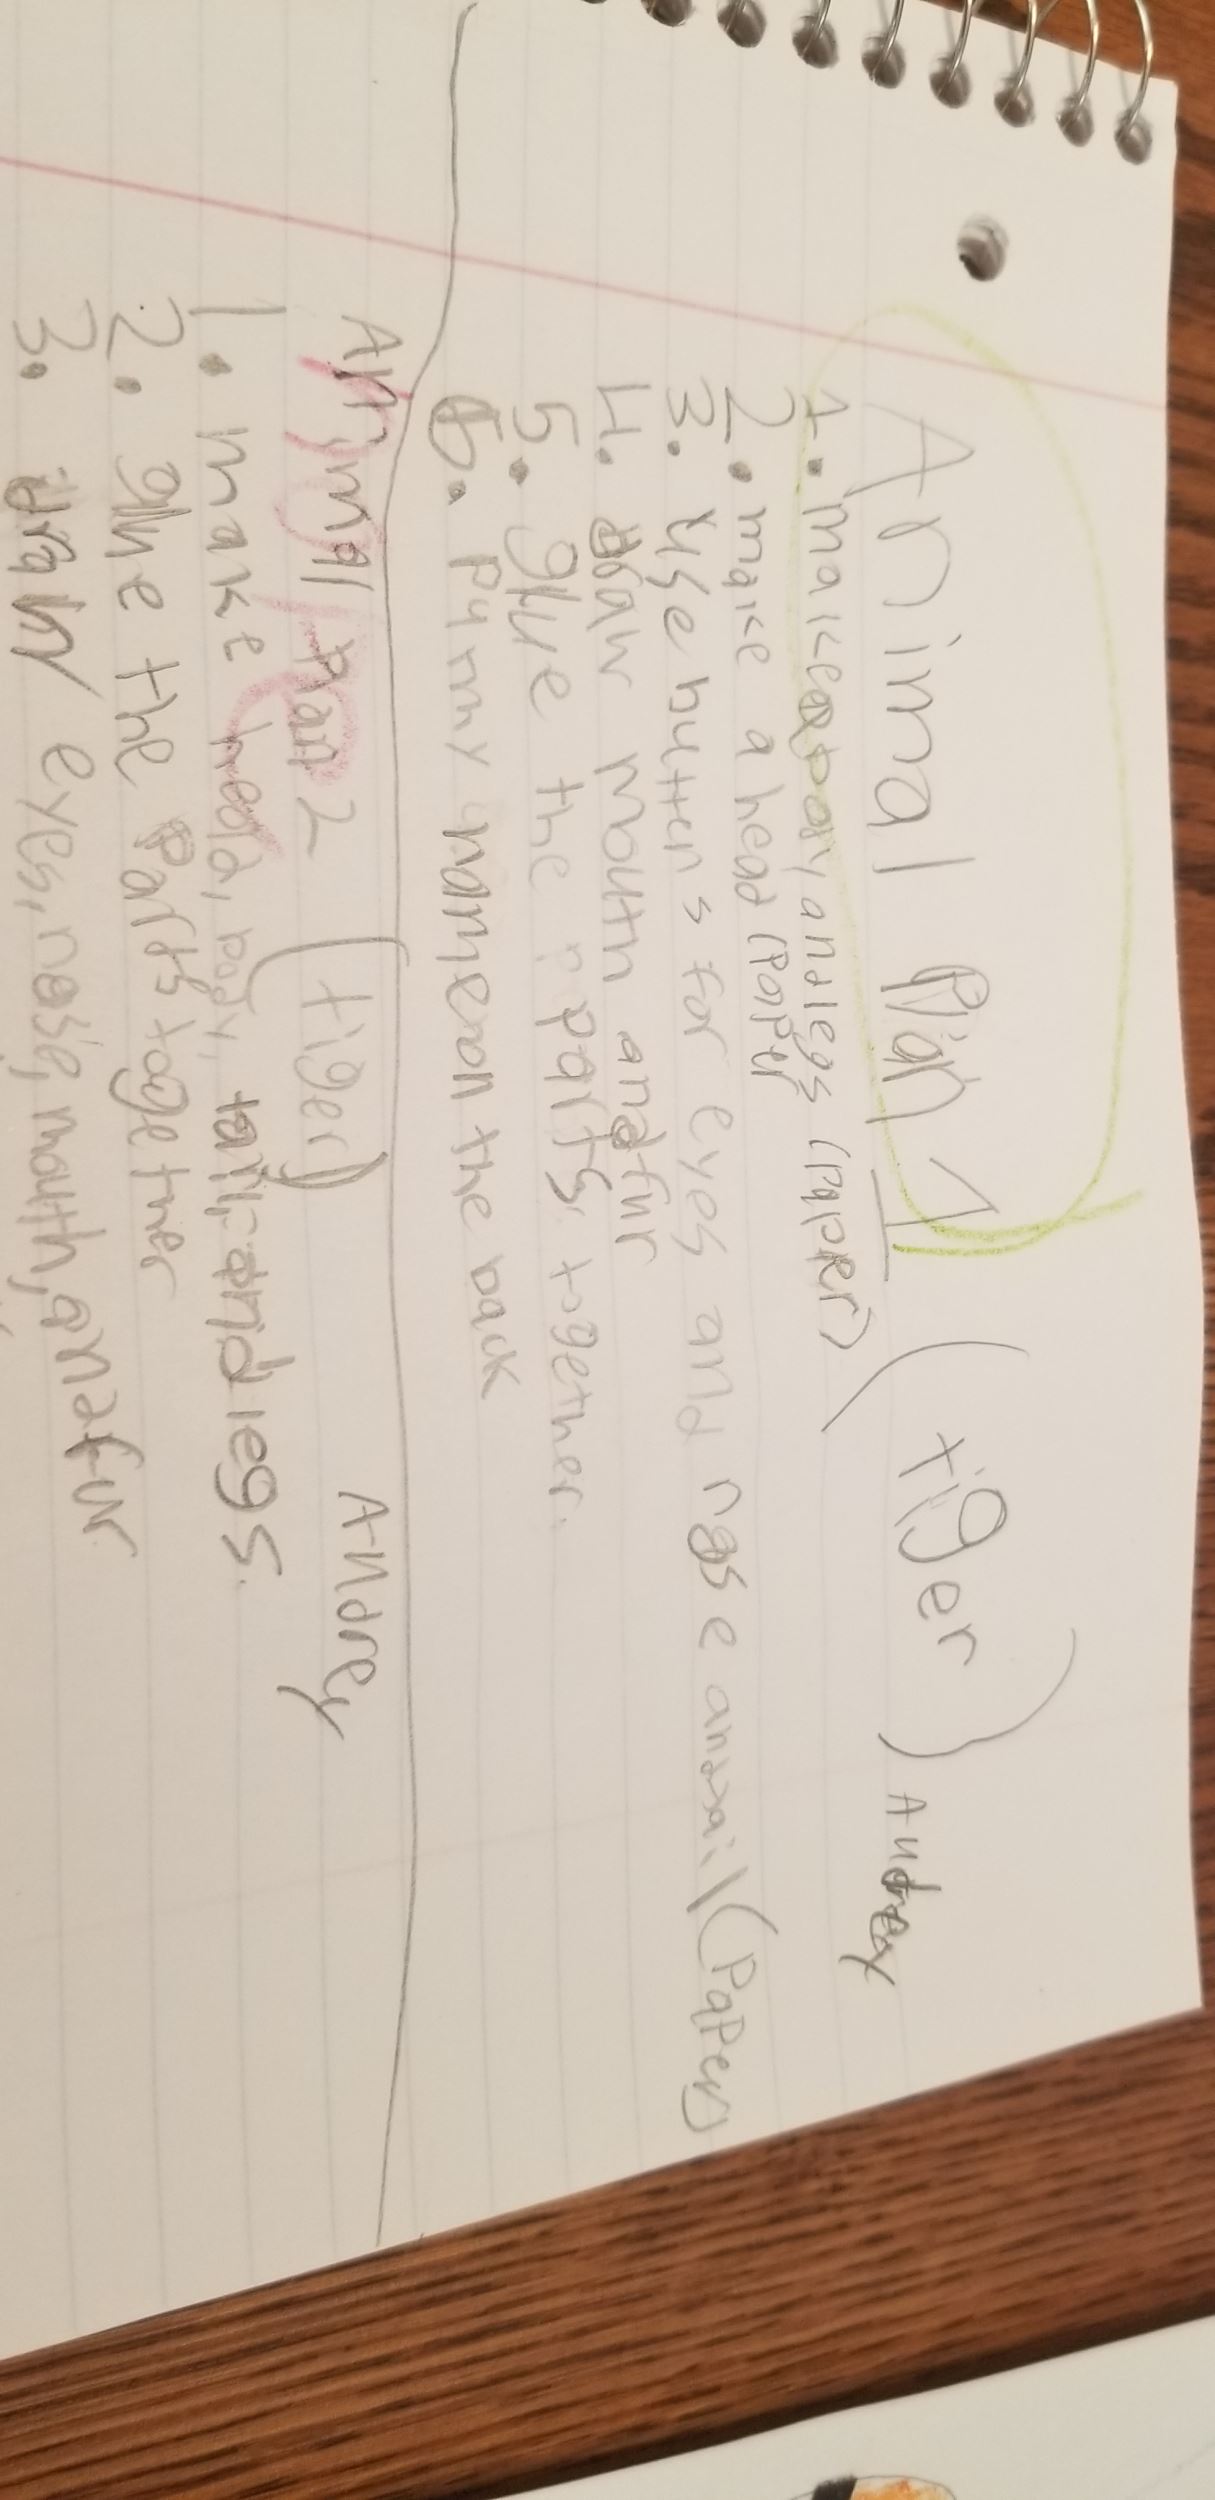 Animal Plan 1 (tiger) Audrey
1. make a body, and legs (paper)
2. make a head (paper
3. use buttens for eyes and nose and tail (paper)
4. draw mouth and fur
5. glue the parts together.
6. put my name on the back
Animal Plan 2 (tiger) Audrey
1. make head, body, tail, and legs.
2. glue the parts together
3. draw eyes, nose, mouth, and fur